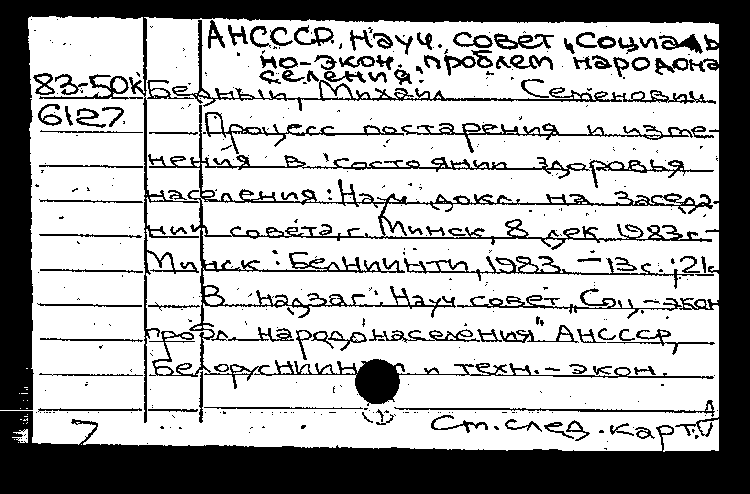 АНСССР, Науч. совет „Социаль
но-экон. проблем народона
селения".
83-50к Бедный, Михаил Семенович.
6127
Процесс постарения и изме-
нения в состоянии здоровья
населения: Науч докл. на заседа-
нии совета, г. Минск, 8 дек 1983г.-
Минск : БелНИИНТИ, 1983. - 13с.; 21с
В надзаг: Науч совет „Соц.-экон
пробл. народонаселения" АНСССР,
Белорус НИИ и техн.-экон.
7 См. след. карт.